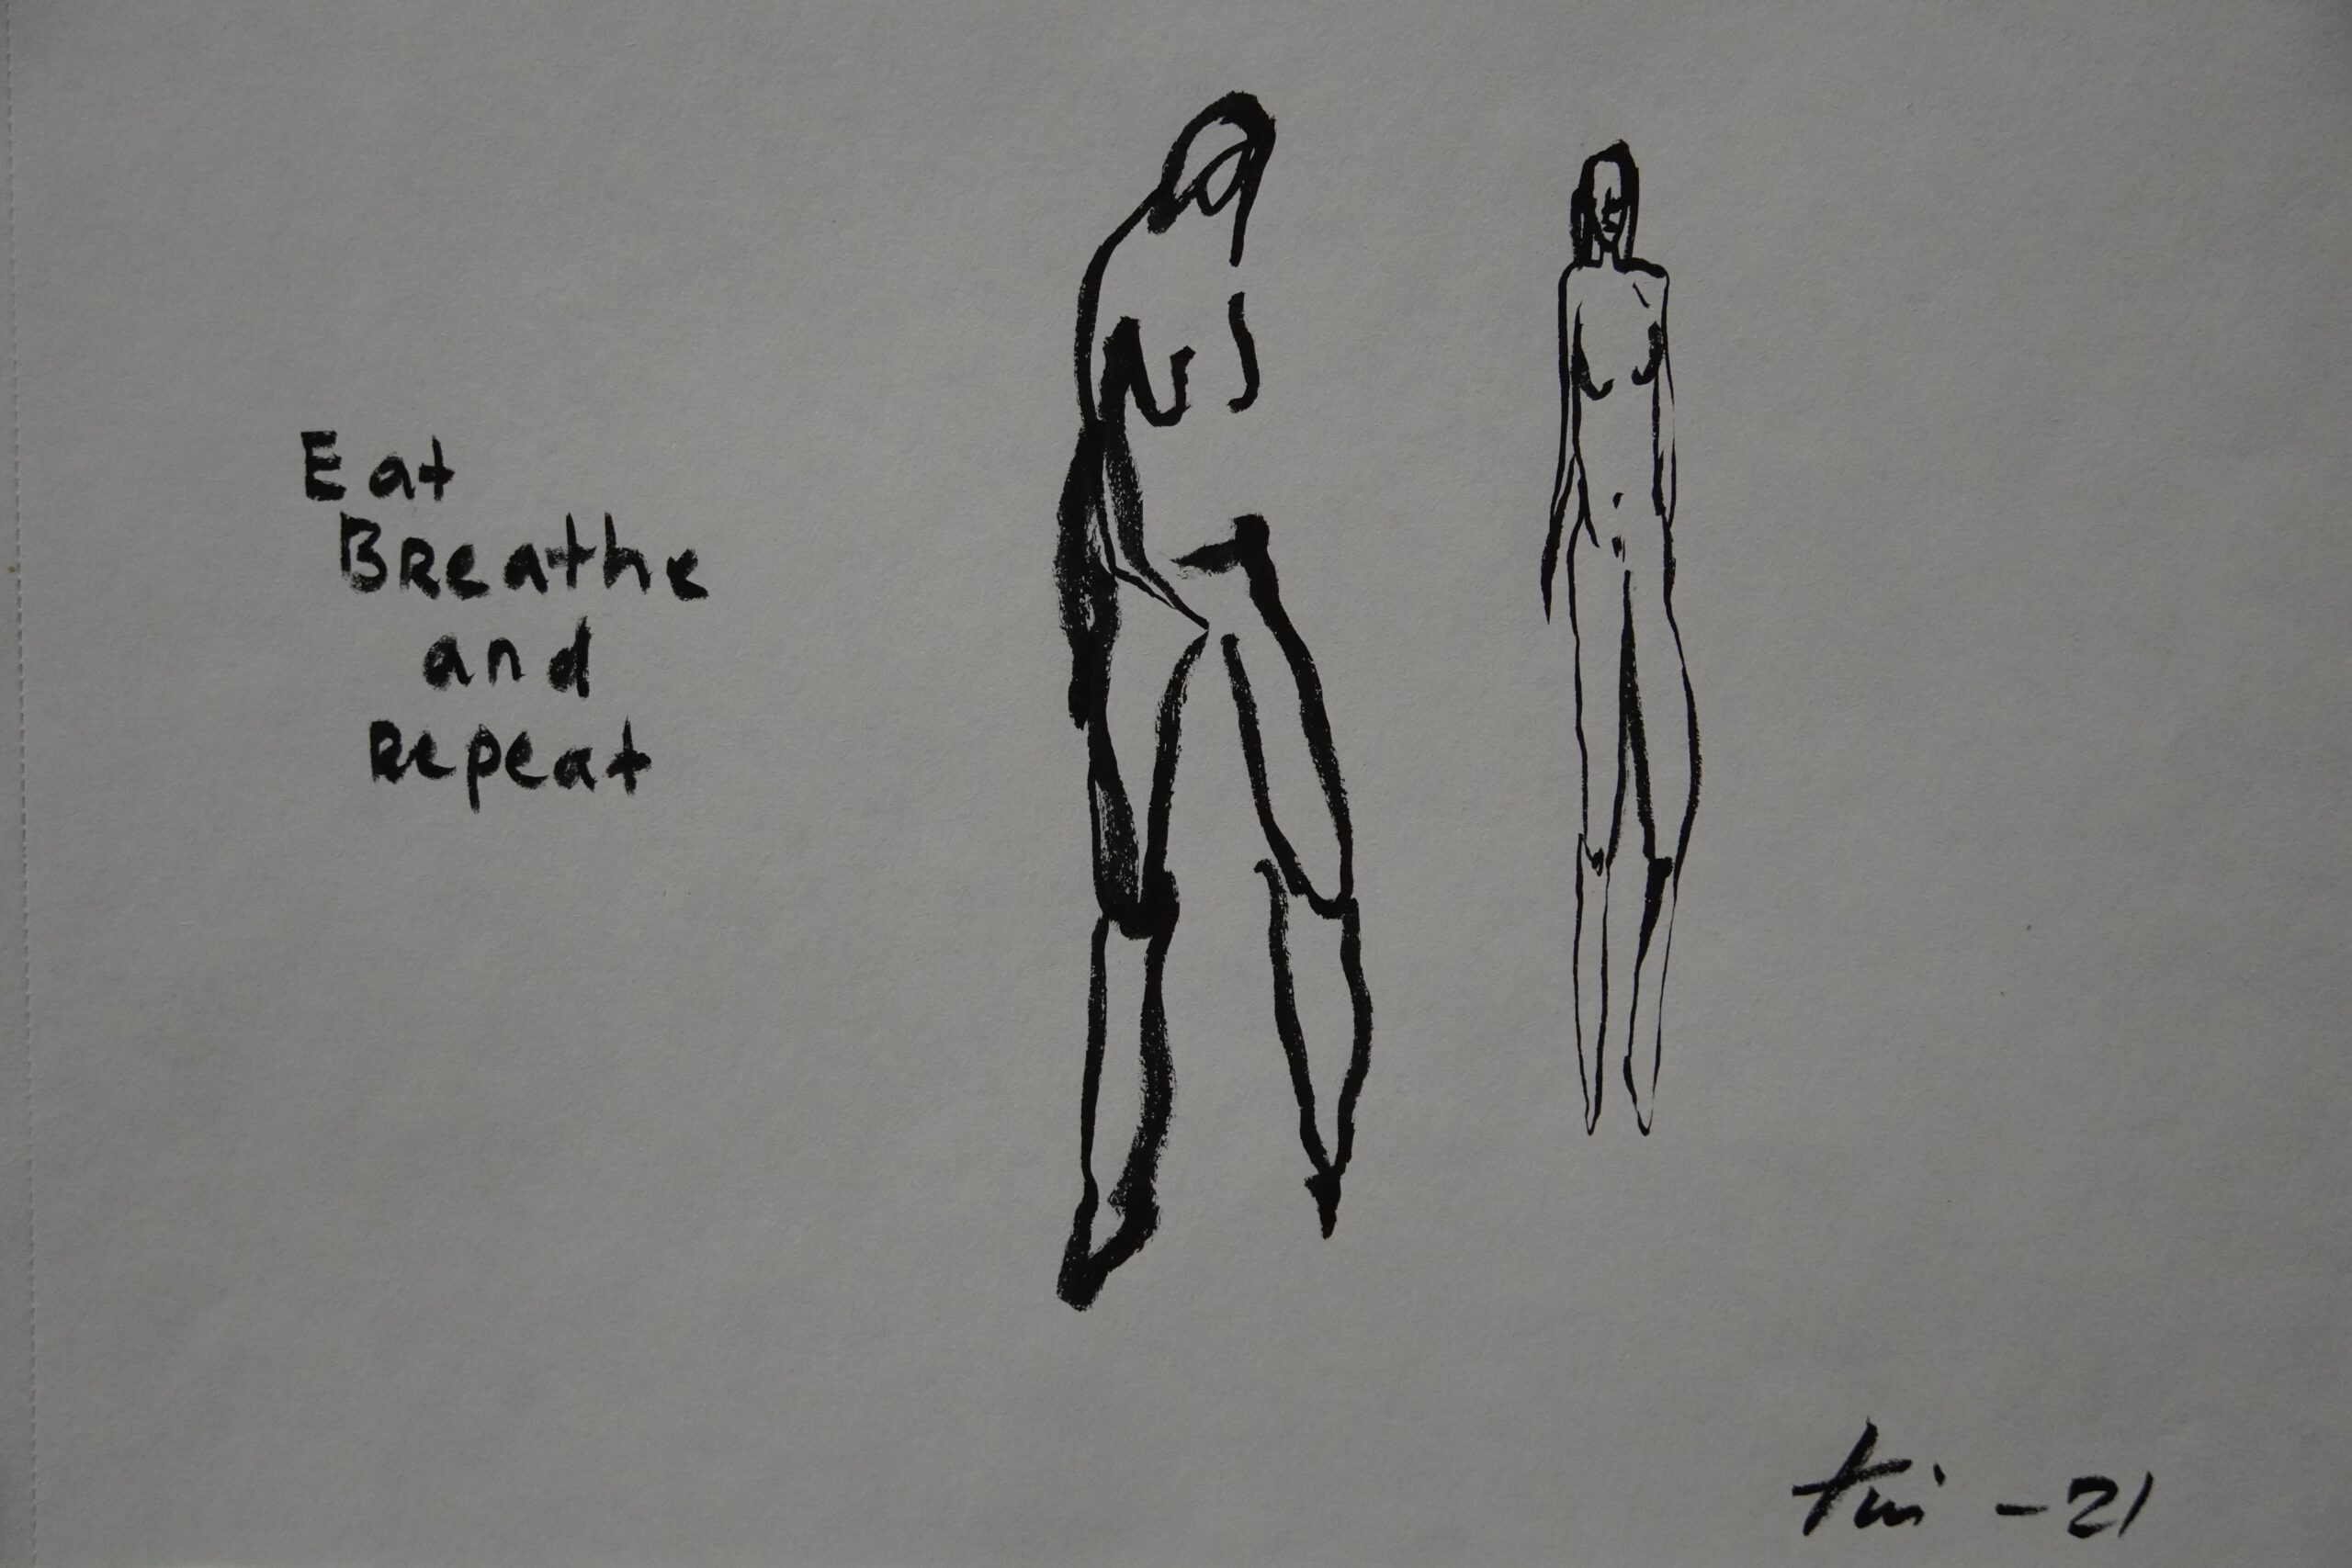 Eat
Breathe
and
Repeat
-21